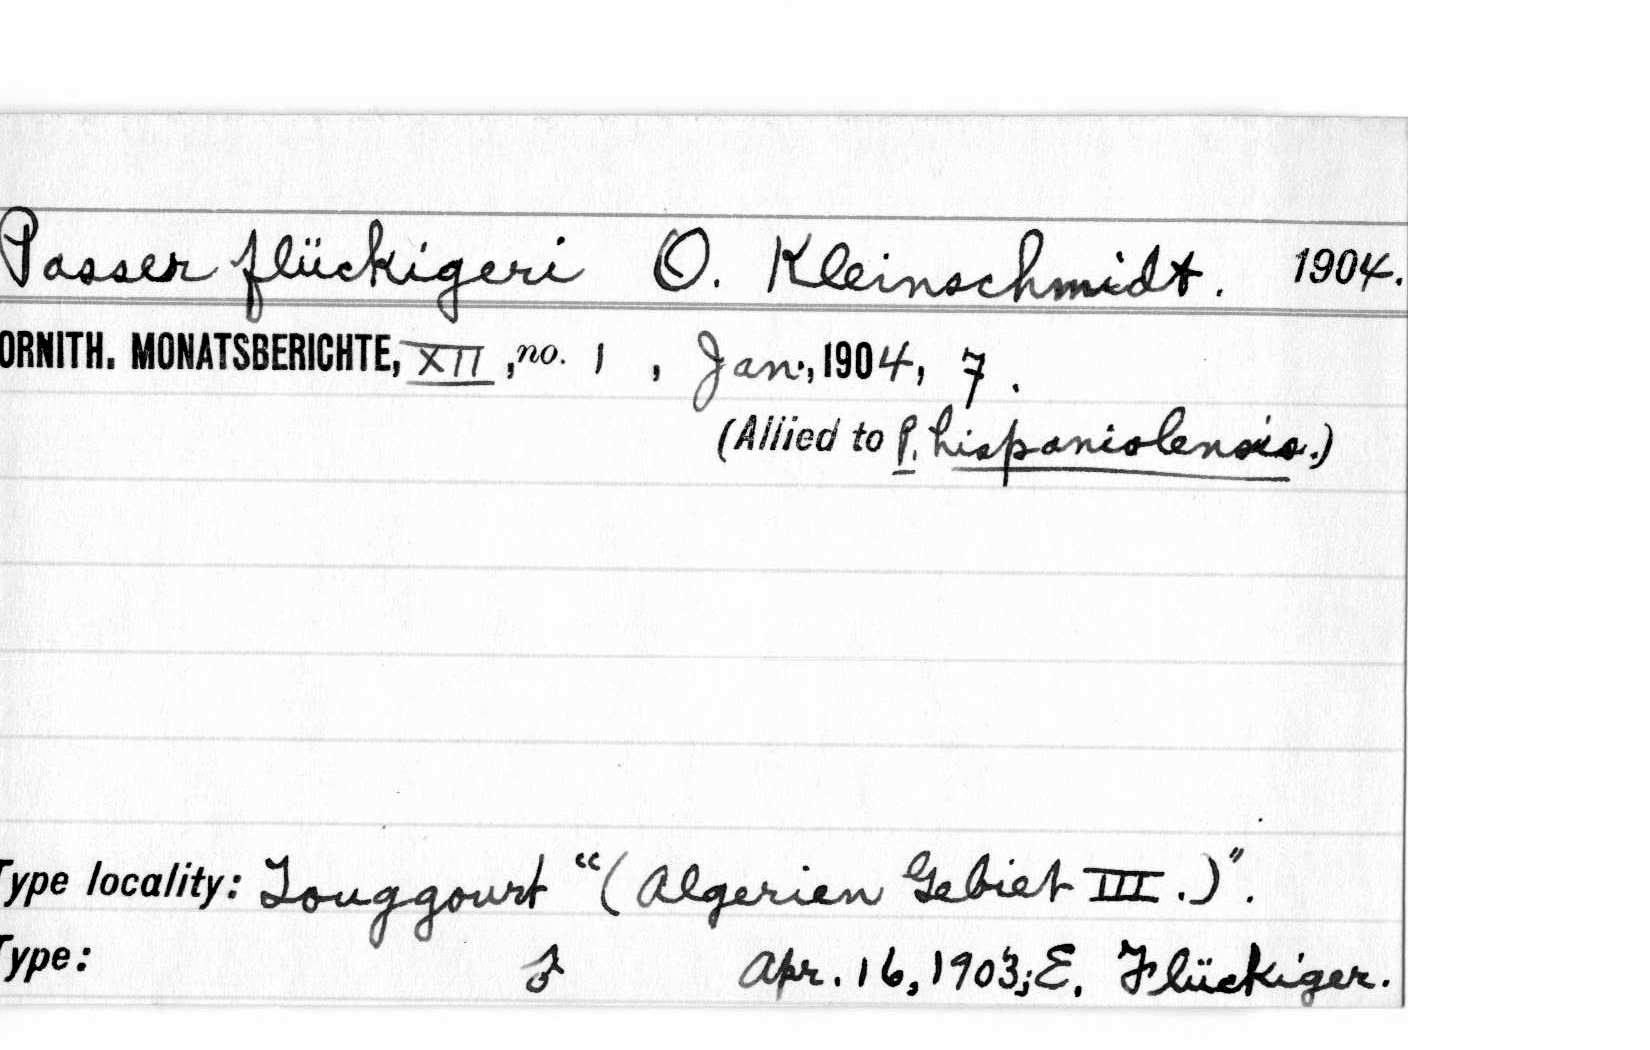 Passer flückigeri O. Kleinschmidt. 1904.
ORNITH. MONATSBERICHTE, XII, no. 1, Jan., 1904, 7.
(Allied to P. hispaniolensis.)
Type locality: Touggourt "(Algerien Gebiet III.)".
Type: ♂ Apr. 16, 1903; E. Flückiger.